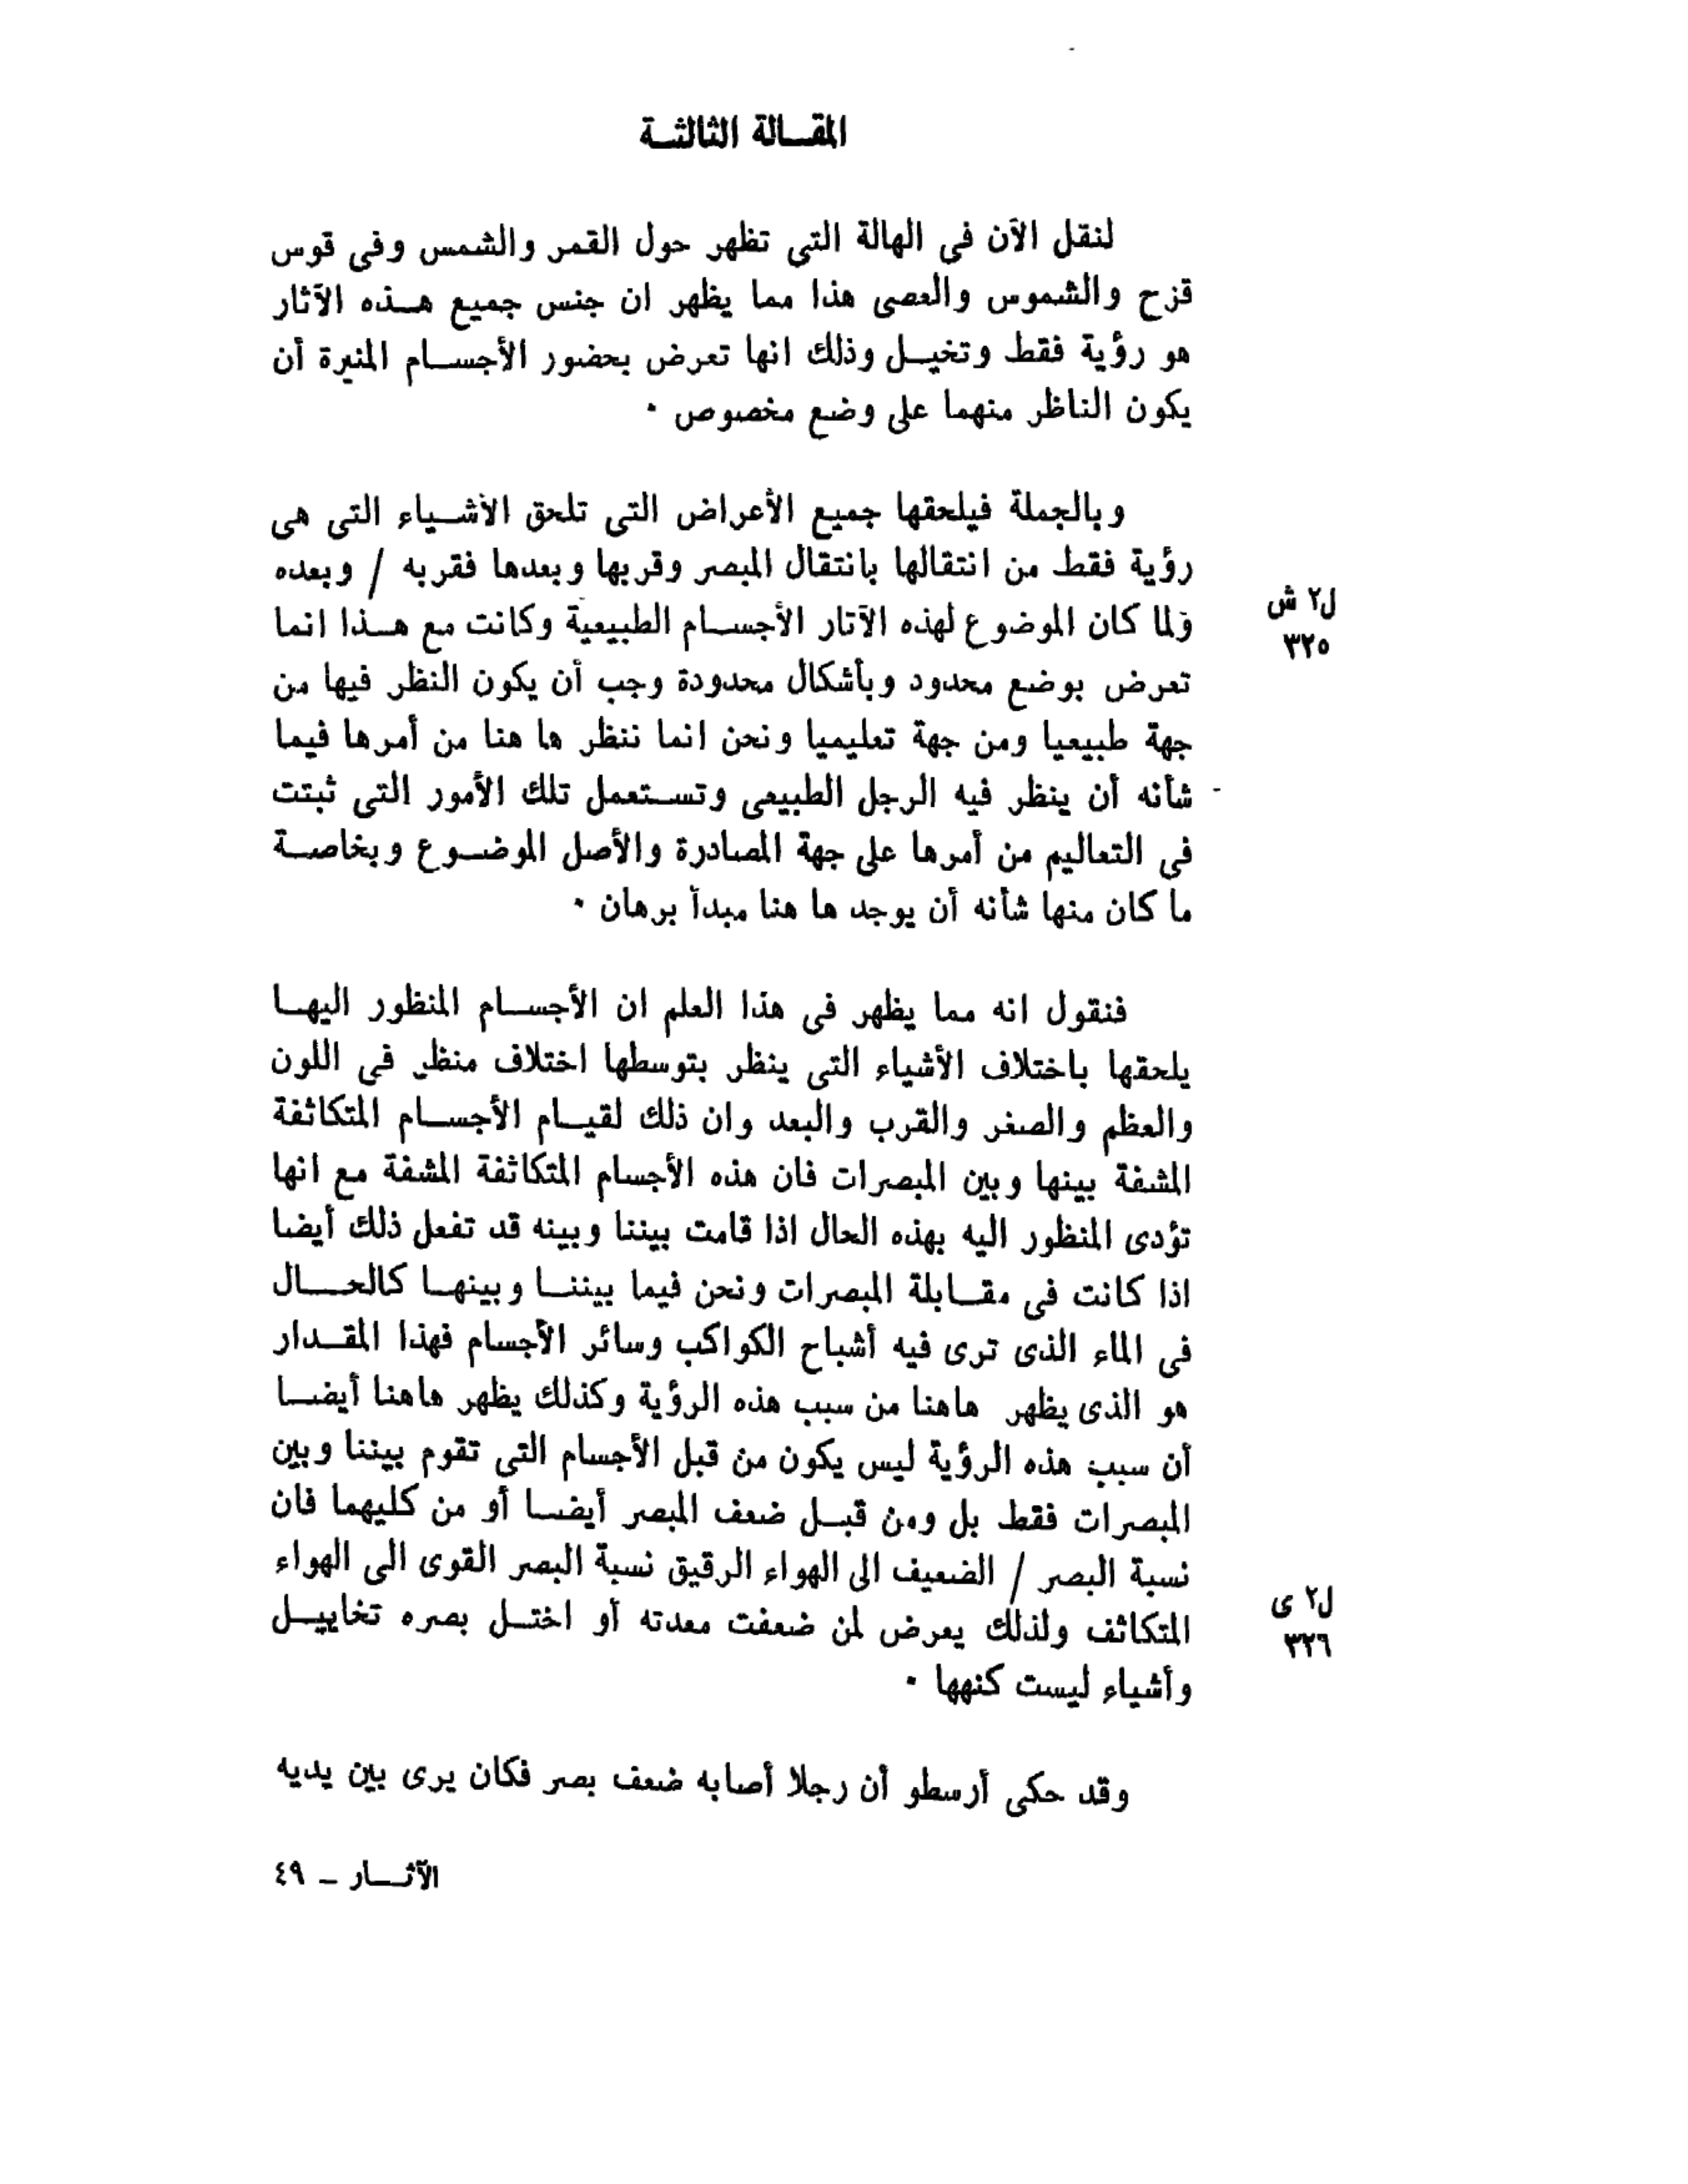 المقالة الثالثة
لنقل الآن فى الهالة التى تظهر حول القمر والشمس وفى قوس
قزح والشموس والعصى هذا مما يظهر ان جنس جميع هذه الآثار
هو رؤية فقط وتخيل وذلك انها تعرض بحضور الأجسام المنيرة أن
يكون الناظر منهما على وضع مخصوص ٠
وبالجملة فيلحقها جميع الأعراض التى تلحق الأشياء التى هى
رؤية فقط من انتقالها بانتقال المبصر وقربها وبعدها فقربه / وبعده
ل٢ ش
٣٢٥
ولما كان الموضوع لهذه الآتار الأجسام الطبيعية وكانت مع هذا انما
تعرض بوضع محدود وبأشكال محدودة وجب أن يكون النظر فيها من
جهة طبيعيا ومن جهة تعليميا ونحن انما ننظر ها هنا من أمرها فيما
شأنه أن ينظر فيه الرجل الطبيعى وتستعمل تلك الأمور التى ثبتت
فى التعاليم من أمرها على جهة المصادرة والأصل الموضوع وبخاصة
ما كان منها شأنه أن يوجد ها هنا مبدأ برهان ٠
فنقول انه مما يظهر فى هذا العلم ان الأجسام المنظور اليها
يلحقها باختلاف الأشياء التى ينظر بتوسطها اختلاف منظر فى اللون
والعظم والصغر والقرب والبعد وان ذلك لقيام الأجسام المتكاثفة
المشفة بينها وبين المبصرات فان هذه الأجسام المتكاثفة المشفة مع انها
تؤدى المنظور اليه بهذه الحال اذا قامت بيننا وبينه قد تفعل ذلك أيضا
اذا كانت فى مقابلة المبصرات ونحن فيما بيننا وبينها كالحال
فى الماء الذى ترى فيه أشباح الكواكب وسائر الأجسام فهذا المقدار
هو الذى يظهر هاهنا من سبب هذه الرؤية وكذلك يظهر هاهنا أيضا
أن سبب هذه الرؤية ليس يكون من قبل الأجسام التى تقوم بيننا وبين
المبصرات فقط بل ومن قبل ضعف المبصر أيضا أو من كليهما فان
نسبة البصر / الضعيف الى الهواء الرقيق نسبة البصر القوى الى الهواء
ل٢ ى
٣٢٦
المتكاثف ولذلك يعرض لمن ضعفت معدته أو اختل بصره تخاييل
وأشياء ليست كنهها ٠
وقد حكى أرسطو أن رجلا أصابه ضعف بصر فكان يرى بين يديه
الآثار - ٤٩